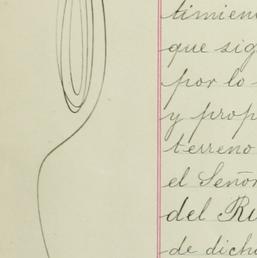 timien
que sig
por lo
y prop
terreno
el Señor
del Ru
de dich